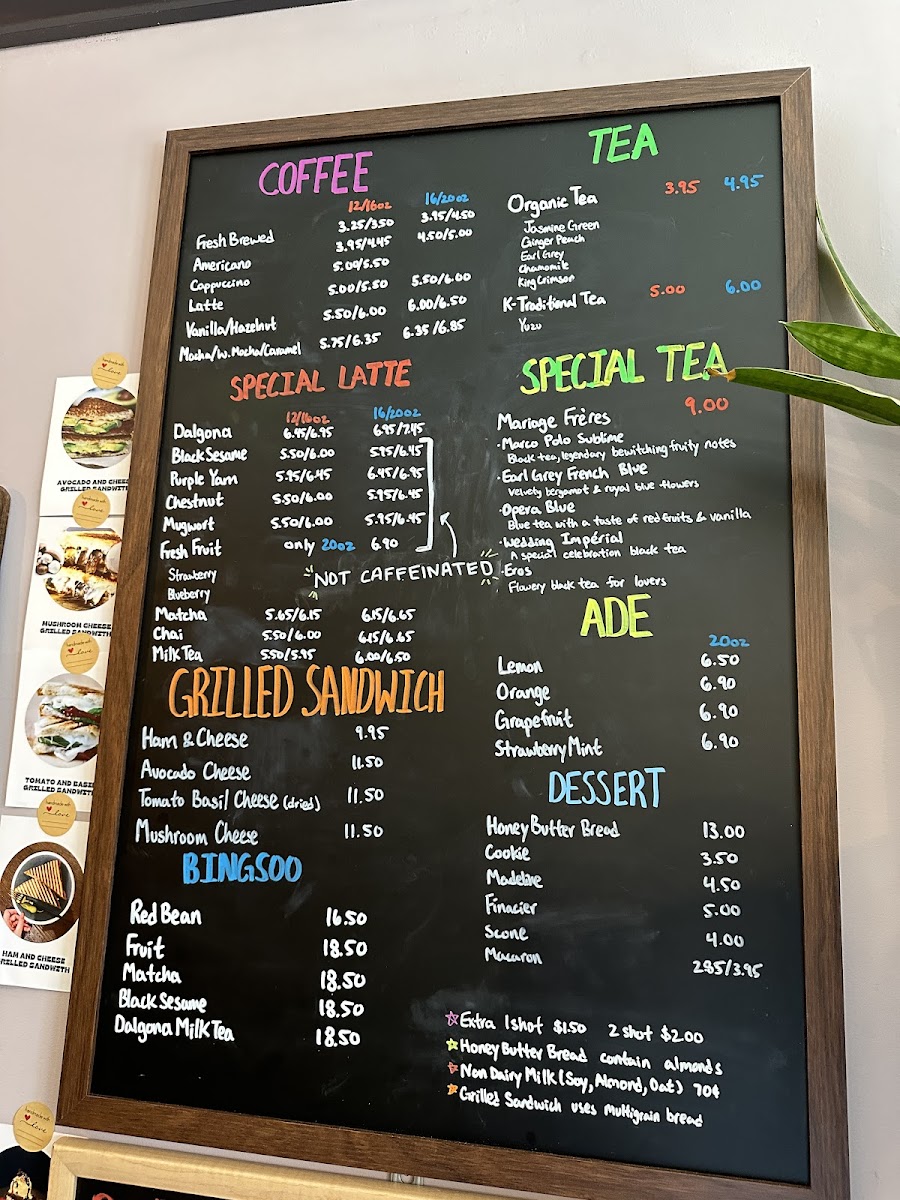 COFFEE
12/16oz 16/20oz
Fresh Brewed 3.25/3.50 3.95/4.50
Americano 3.95/4.45 4.50/5.00
Cappuccino 5.00/5.50
Latte 5.00/5.50 5.50/6.00
Vanilla/Hazelnut 5.50/6.00 6.00/6.50
Mocha/W.Mocha/Caramel 5.75/6.35 6.35/6.85
SPECIAL LATTE
12/16oz 16/20oz
Dalgona 6.45/6.95 6.95/7.45
Black Sesame 5.50/6.00 5.95/6.45
Purple Yam 5.95/6.45 6.45/6.95
Chestnut 5.50/6.00 5.95/6.45
Mugwort 5.50/6.00 5.95/6.45
Fresh Fruit only 20oz 6.90
Strawberry
Blueberry
NOT CAFFEINATED
Matcha 5.65/6.15 6.15/6.65
Chai 5.50/6.00 6.15/6.65
Milk Tea 5.50/5.95 6.00/6.50
GRILLED SANDWICH
Ham & Cheese 9.95
Avocado Cheese 11.50
Tomato Basil Cheese (dried) 11.50
Mushroom Cheese 11.50
BINGSOO
Red Bean 16.50
Fruit 18.50
Matcha 18.50
Black Sesame 18.50
Dalgona Milk Tea 18.50
TEA
Organic Tea 3.95 4.95
Jasmine Green
Ginger Peach
Earl Grey
Chamomile
King Crimson
K-Traditional Tea 5.00 6.00
Yuzu
SPECIAL TEA
Mariage Frères 9.00
·Marco Polo Sublime
Black tea, legendary bewitching fruity notes
·Earl Grey French Blue
Velvety bergamot & royal blue flowers
·Opera Blue
Blue tea with a taste of red fruits & vanilla
·Wedding Impérial
A special celebration black tea
·Eros
Flowery black tea for lovers
ADE
20oz
Lemon 6.50
Orange 6.90
Grapefruit 6.90
Strawberry Mint 6.90
DESSERT
Honey Butter Bread 13.00
Cookie 3.50
Madeline 4.50
Finacier 5.00
Scone 4.00
Macaron 2.85/3.95
☆Extra 1shot $1.50 2 shot $2.00
☆Honey Butter Bread contain almonds
☆Non Dairy Milk (Soy, Almond, Oat) 70¢
☆Grilled Sandwich uses multigrain bread
love
AVOCADO AND CHEESE
GRILLED SANDWITH
love
MUSHROOM CHEESE
GRILLED SANDWITH
love
TOMATO AND BASE
GRILLED SANDWIT
love
HAM AND CHEESE
GRILLED SANDWITH
love